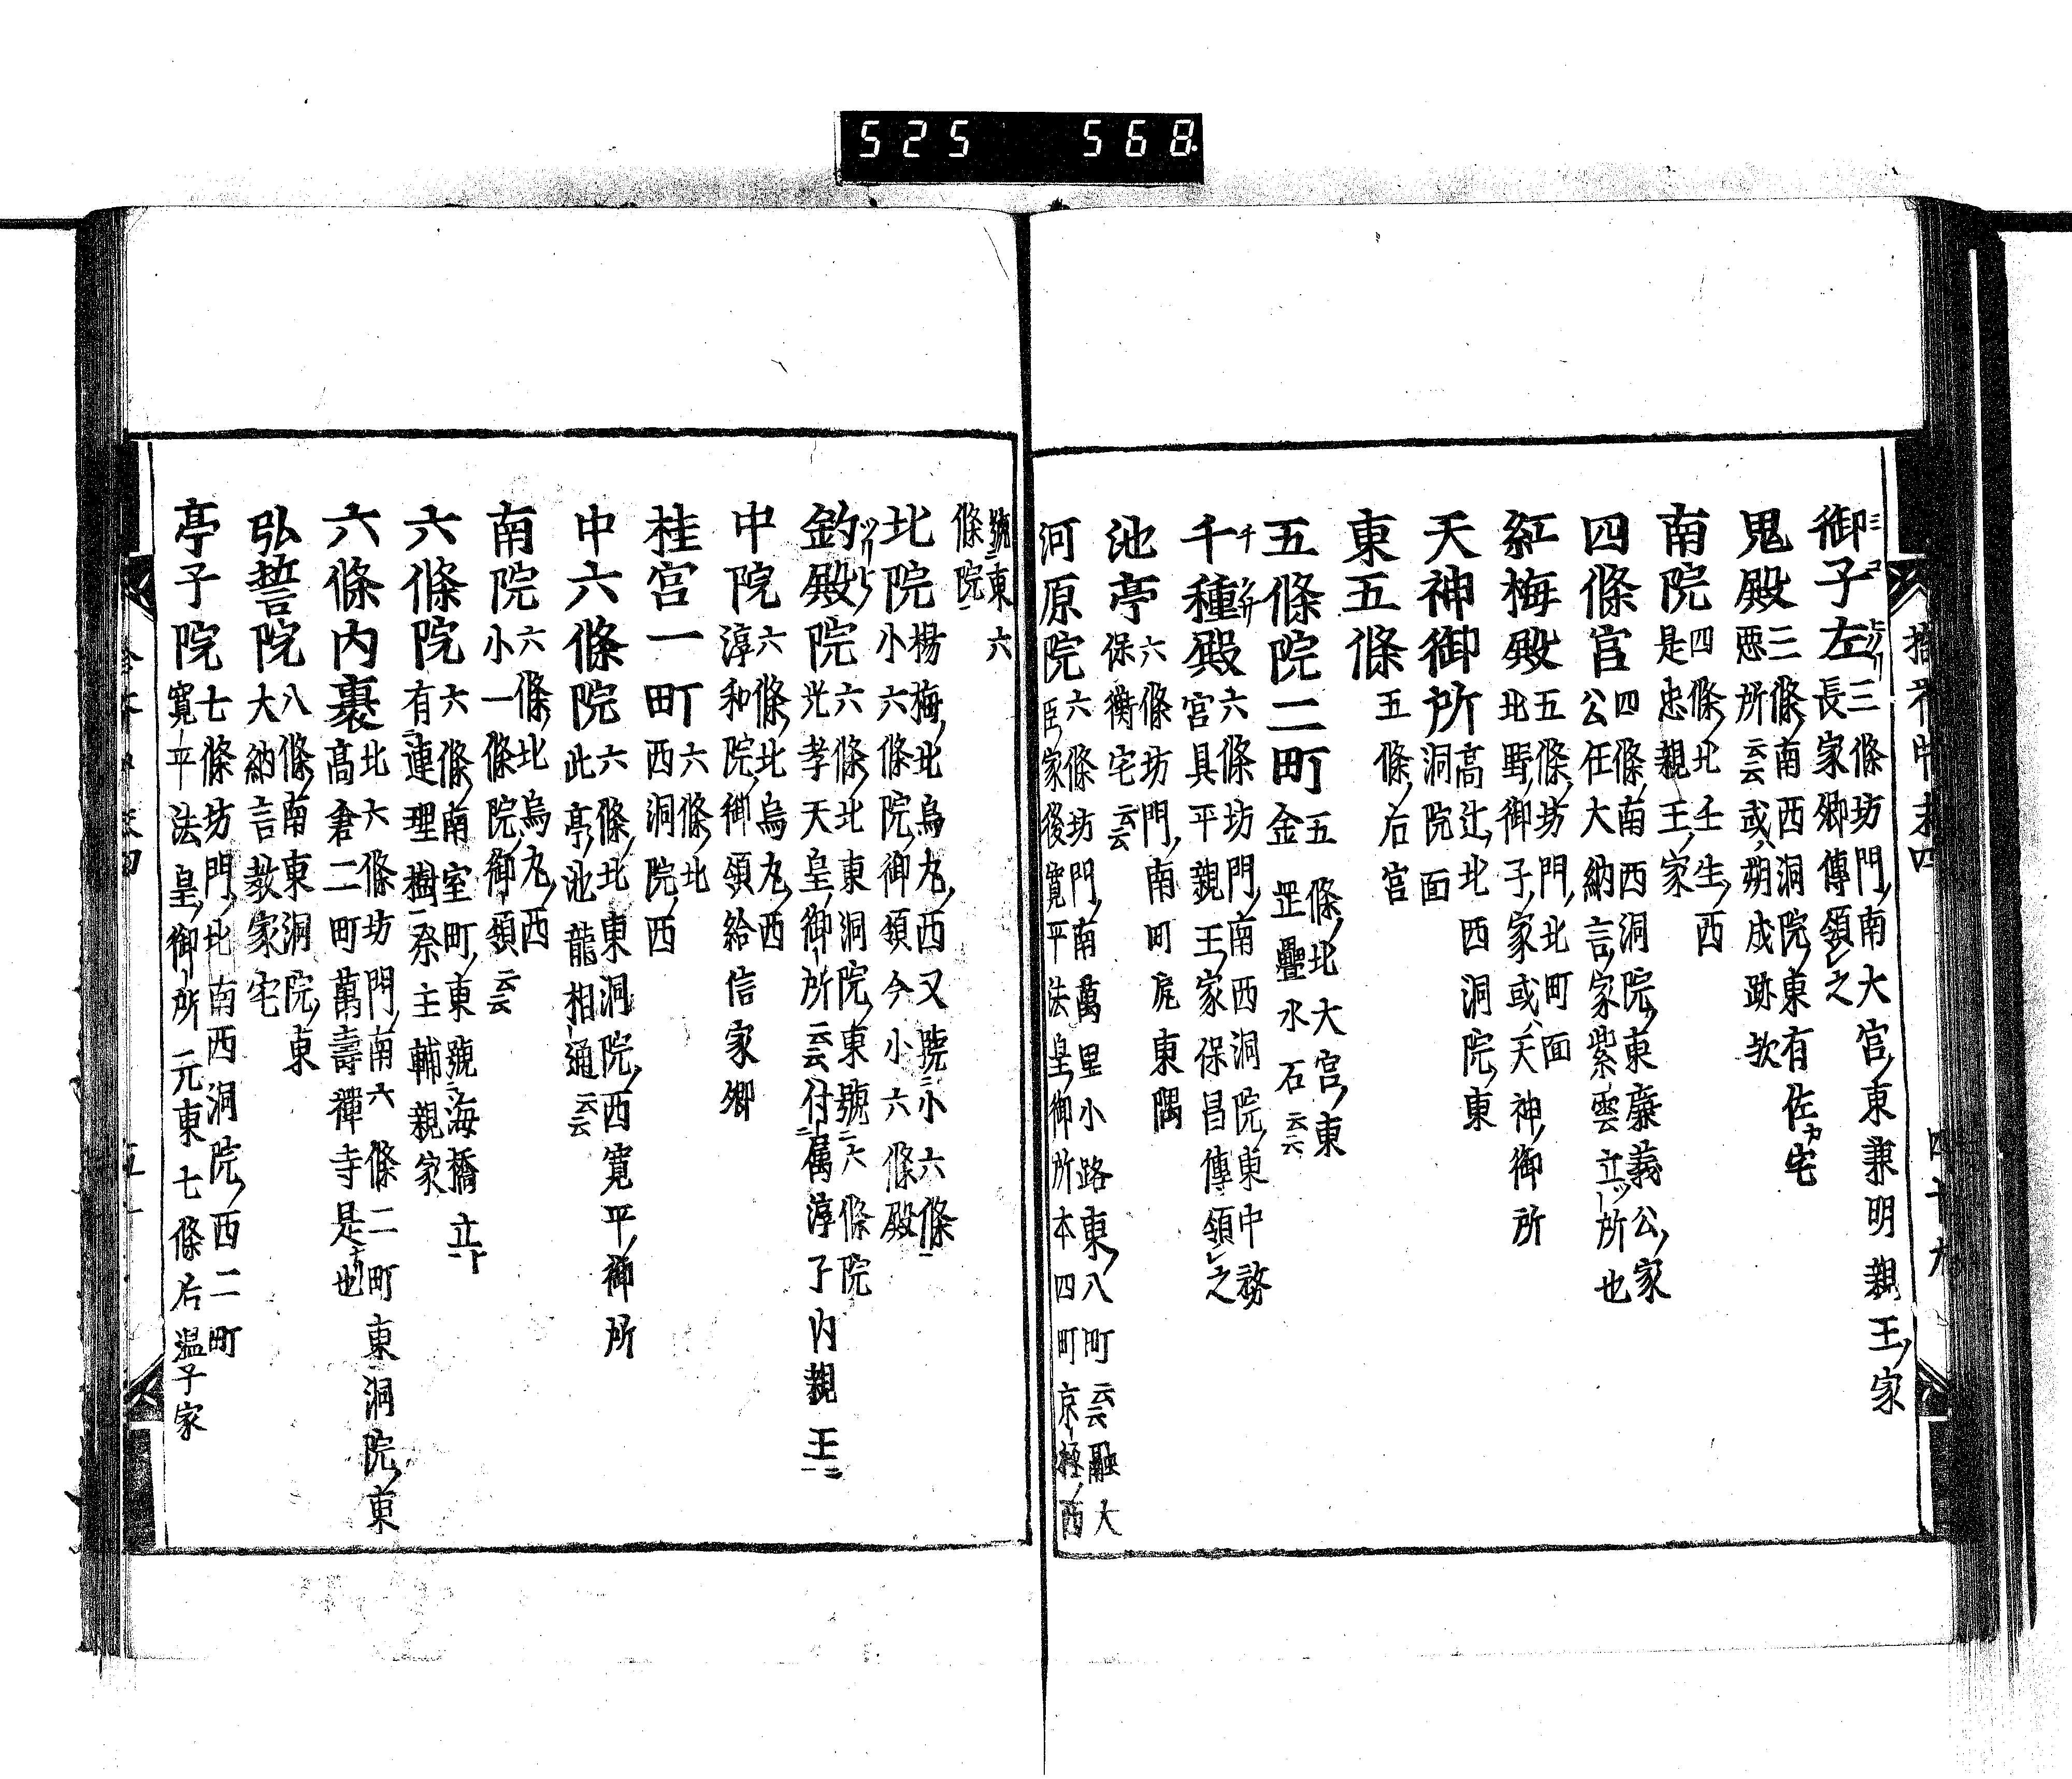 525 568
御子左 三條坊門南大宮東兼明親王家
長家卿傳領之
鬼殿 三條南西洞院東有佐宅
悪所云云或朔成跡欤
南院 四條北壬生西
是忠親王家
四條宮 四條南西洞院東廉義公家
公任大納言家紫雲立所也
紅梅殿 五條坊門北町面
北野御子家或天神御所
天神御所 高辻北西洞院東
洞院面
東五條 五條后宮
五條院二町 五條北大宮東
金罡疊水石云云
千種殿 六條坊門南西洞院東中務
宮具平親王家保昌傳領之
池亭 六條坊門南町尻東隅
保衡宅云云
河原院 六條坊門南萬里小路東八町云云融大
臣家後寛平法皇御所本四町京極西
號東六
條院
北院 楊梅北烏丸西又號小六條
小六條院御領今小六條殿
釣殿院 六條北東洞院東號六條院
光孝天皇御所云云付属淳子内親王
中院 六條北烏丸西
淳和院御領給信家卿
桂宮一町 六條北
西洞院西
中六條院 六條北東洞院西寛平御所
此亭池龍相通云云
南院 六條北烏丸西
小一條院御領云云
六條院 六條南室町東號海橋立
有連理樹祭主輔親家
六條内裏 北六條坊門南六條二町東洞院東
高倉二町萬壽禪寺是也
弘誓院 八條南東洞院東
大納言教家宅
亭子院 七條坊門北南西洞院西二町
寛平法皇御所元東七條后温子家